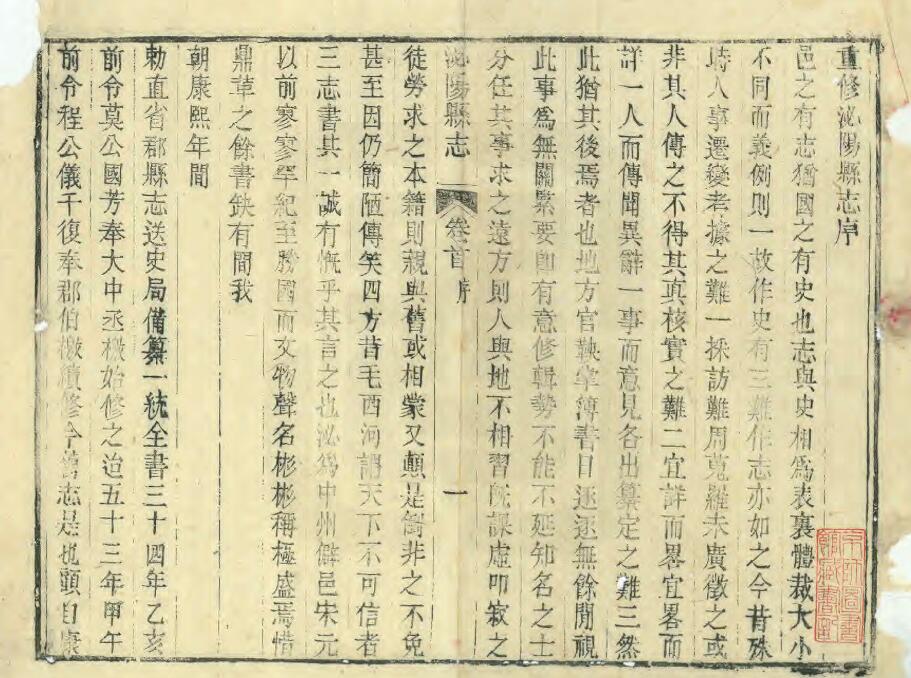 重修泌陽縣志序
邑之有志猶國之有史也志與史相爲表裏體裁大小
不同而義例則一故作史有三難作志亦如之今昔殊
時人事遷變考據之難一採訪難周蒐羅未廣徵之或
非其人傳之不得其真核實之難二宜詳而畧宜畧而
詳一人而傳聞異辭一事而意見各出纂定之難三然
此猶其後焉者也地方官執掌簿書日逐逐無餘閒視
此事爲無關繁要卽有意修輯勢不能不延知名之士
分任其事求之遠方則人與地不相習旣課虛叩寂之
泌陽縣志 卷首 序 一
徒勞求之本籍則親與舊或相蒙又顛是倒非之不免
甚至因仍簡陋傳笑四方昔毛西河謂天下不可信者
三志書其一誠有慨乎其言之也泌爲中州僻邑宋元
以前寥寥罕紀至勝國而文物聲名彬彬稱極盛焉惜
鼎革之餘書缺有間我
朝康熙年間
勅直省郡縣志送史局備纂一統全書三十四年乙亥
前令莫公國芳奉大中丞檄始修之迨五十三年甲午
前令程公儀千復奉郡伯檄續修今舊志是也顧自康